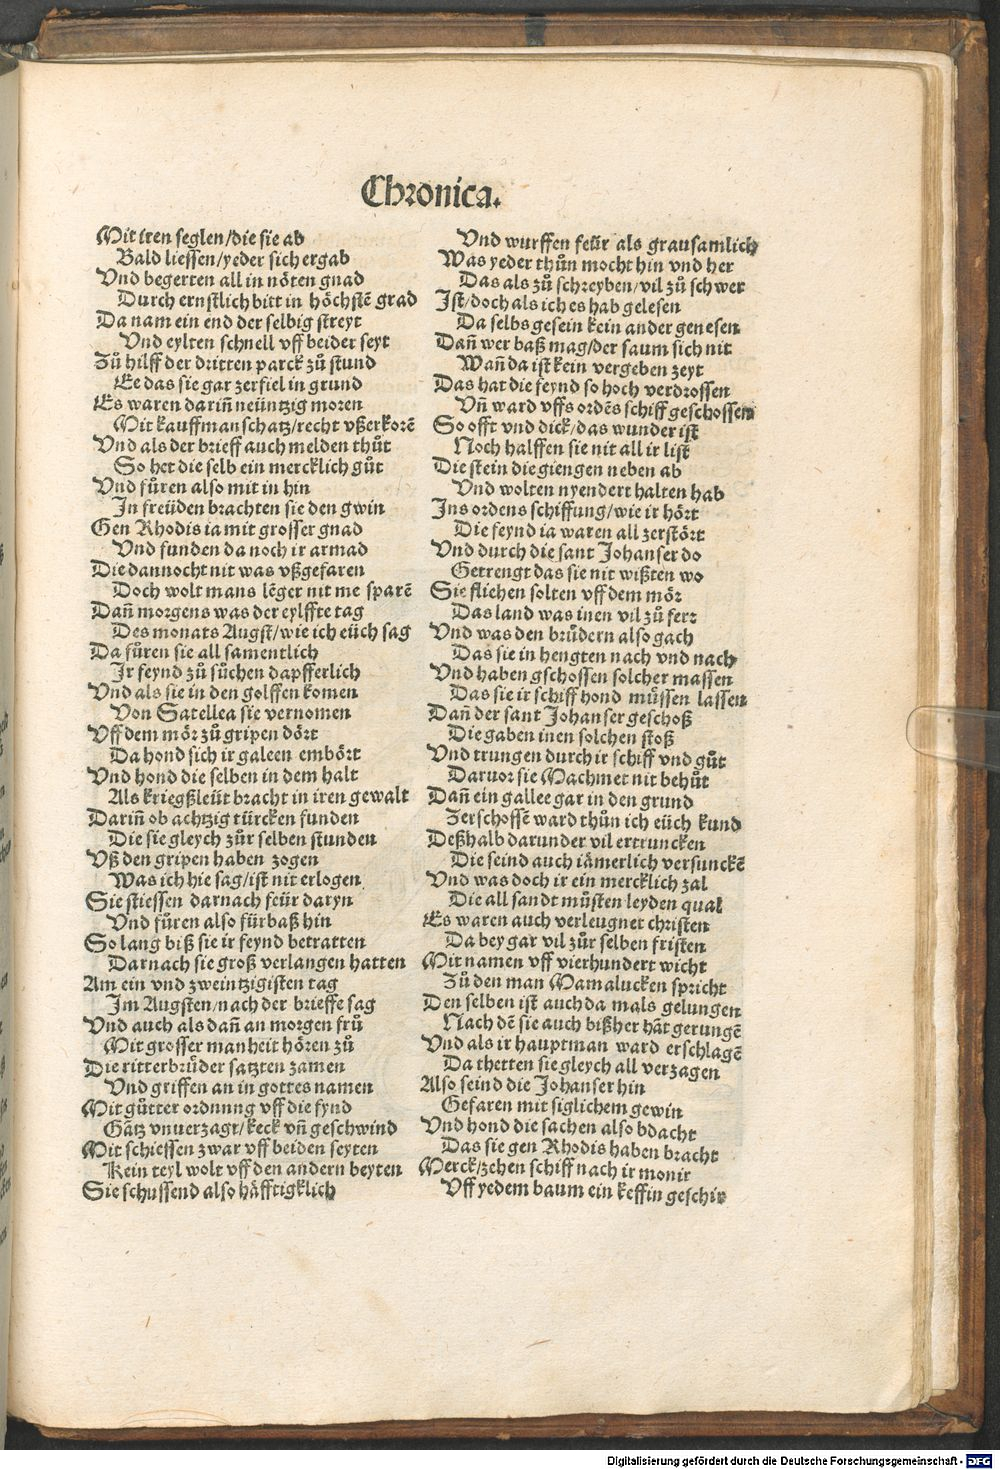 Chronica.
Mit iren seglen/die sie ab
Bald liessen/yeder sich ergab
Vnd begerten all in nöten gnad
Durch ernstlich bitt in höchstē grad
Da nam ein end der selbig streyt
Vnd eylten schnell vff beider seyt
Zů hilff der dritten parck zů stund
Ee das sie gar zerfiel in grund
Es waren dariñ neüntzig moren
Mit kauffmanschatz/recht vßerkorē
Vnd als der brieff auch melden thůt
So het die selb ein mercklich gůt
Vnd fůren also mit in hin
In freüden brachten sie den gwin
Gen Rhodis ia mit grosser gnad
Vnd funden da noch ir armad
Die dannocht nit was vßgefaren
Doch wolt mans lēger nit me sparē
Dañ morgens was der eylffte tag
Des monats Augst/wie ich eüch sag
Da fůren sie all samentlich
Ir feynd zů sůchen dapfferlich
Vnd als sie in den golffen komen
Von Satellea sie vernomen
Vff dem mör zů gripen dört
Da hond sich ir galeen embört
Vnd hond die selben in dem halt
Als kriegßleüt bracht in iren gewalt
Dariñ ob achtzig türcken funden
Die sie gleych zůr selben stunden
Vß den gripen haben zogen
Was ich hie sag/ist nit erlogen
Sie stiessen darnach feür daryn
Vnd fůren also fürbaß hin
So lang biß sie ir feynd betratten
Darnach sie groß verlangen hatten
Am ein vnd zweintzigisten tag
Im Augsten/nach der brieffe sag
Vnd auch als dañ an morgen frů
Mit grosser manheit hören zů
Die ritterbrůder satzten zamen
Vnd griffen an in gottes namen
Mit gůtter ordnung vff die fynd
Gātz vnuerzagt/keck vñ geschwind
Mit schiessen zwar vff beiden seyten
Kein teyl wolt vff den andern beyten
Sie schussend also häfftigklich
Vnd wurffen feür als grausamlich
Was yeder thůn mocht hin vnd her
Das als zů schreyben/vil zů schwer
Ist/doch als ich es hab gelesen
Da selbs gesein kein ander genesen
Dañ wer baß mag/der saum sich nit
Wañ da ist kein vergeben zeyt
Das hat die feynd so hoch verdrossen
Vñ ward vffs ordēs schiff geschossen
So offt vnd dick/das wunder ist
Noch halffen sie nit all ir list
Die stein die giengen neben ab
Vnd wolten nyendert halten hab
Ins ordens schiffung/wie ir hört
Die feynd ia waren all zerstört
Vnd durch die sant Johanser do
Getrengt das sie nit wißten wo
Sie fliehen solten vff dem mör
Das land was inen vil zů ferr
Vnd was den brůdern also gach
Das sie in hengten nach vnd nach
Vnd haben gschossen solcher massen
Das sie ir schiff hond müssen lassen
Dañ der sant Johanser geschoß
Die gaben inen solchen stoß
Vnd trungen durch ir schiff vnd gůt
Daruor sie Machmet nit behůt
Dañ ein gallee gar in den grund
Zerschossē ward thůn ich eüch kund
Deßhalb darunder vil ertruncken
Die seind auch iämerlich versunckē
Vnd was doch ir ein mercklich zal
Die all sandt můsten leyden qual
Es waren auch verleugnet christen
Da bey gar vil zůr selben fristen
Mit namen vff vierhundert wicht
Zů den man Mamalucken spricht
Den selben ist auch da mals gelungen
Nach dē sie auch bißher hāt gerungē
Vnd als ir hauptman ward erschlagē
Da thetten sie gleych all verzagen
Also seind die Johanser hin
Gefaren mit siglichem gewin
Vnd hond die sachen also bdacht
Das sie gen Rhodis haben bracht
Merck/zehen schiff nach ir monir
Vff yedem baum ein keffin geschir
Digitalisierung gefördert durch die Deutsche Forschungsgemeinschaft - DFG